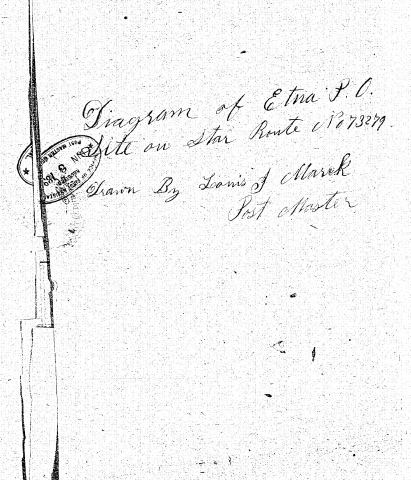 Diagram of Etna P.O.
Site on Star Route No 73279.
Drawn By Louis J Marek
Post Master
POST MASTER